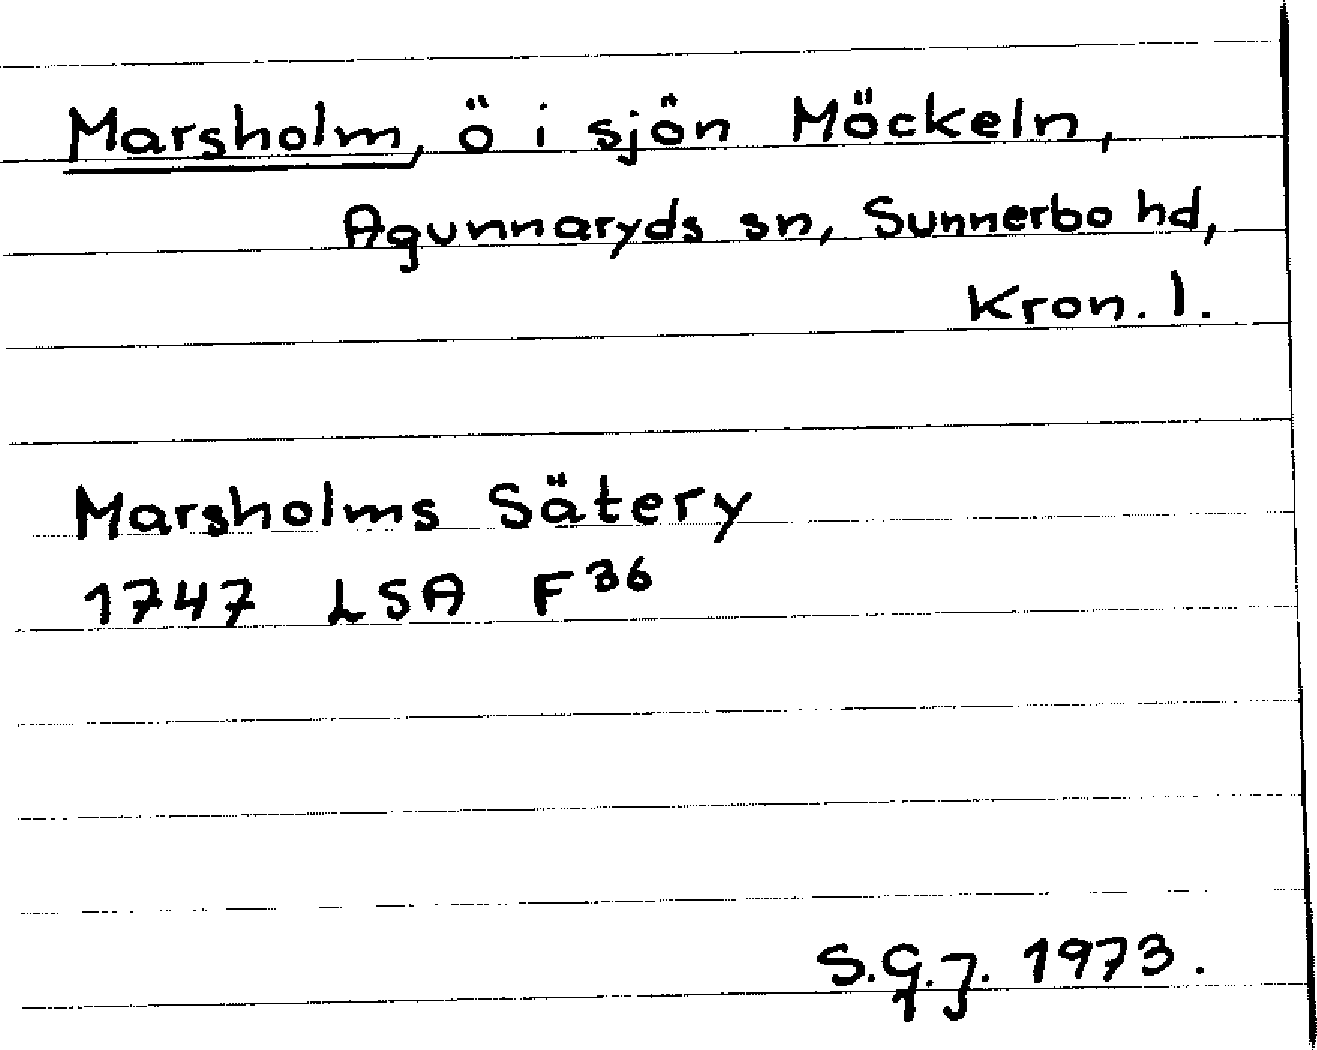 Marsholm, ö i sjön Möckeln,
Agunnaryds sn, Sunnerbo hd,
Kron. l.
Marsholms Sätery
1747 LSA F36
S.G.J. 1973.